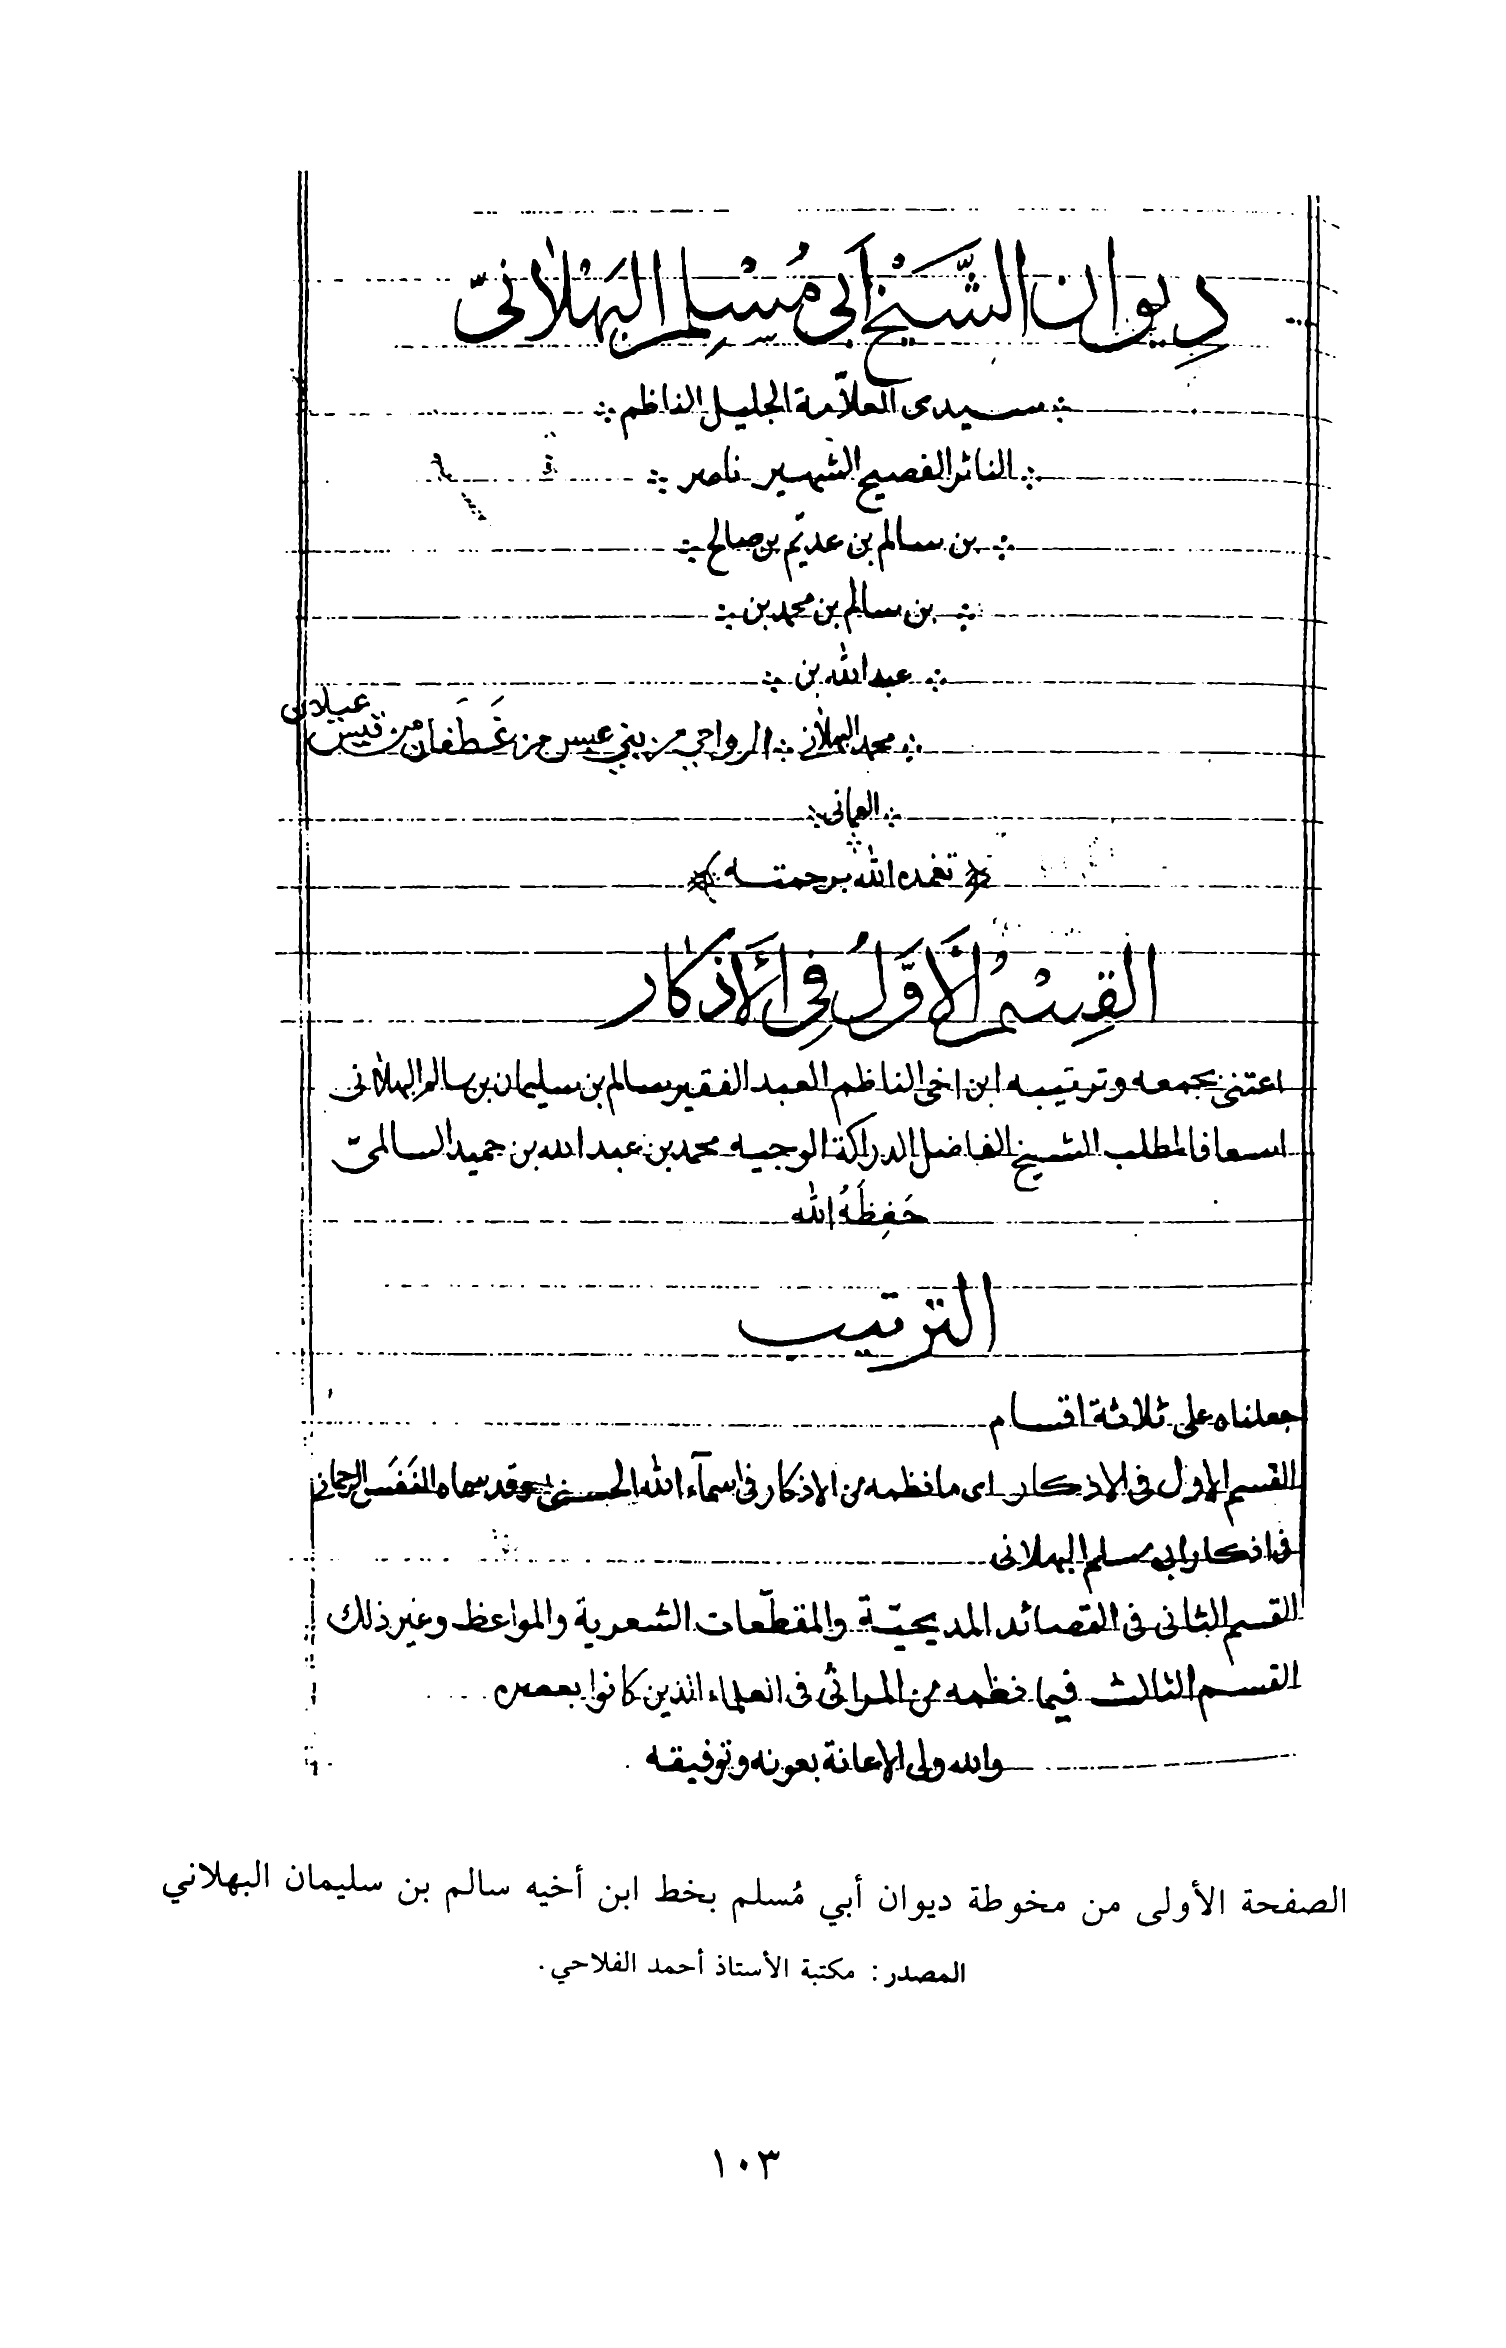 ديوان الشَّيْخ أَبي مُسْلِم البَهْلاٰنيّ
سيدى العلاّمة الجليل الناظم
الناثر الفصيح الشهير ناصر
بن سالم بن عديّم بن صالح
بن سالم بن محمد بن
عبد الله بن
محمد البهلاني الرواحي من بني عبس من غَطَفان من قيس عيلان
العمانى
تغمده الله برحمته
القِسْمُ الأَوَّلُ فِي الأَذكار
اعتنى بجمعه وترتيبه ابن اخى الناظم العبد الفقير سالم بن سليمان بن سالم البهلانى
اسعافا لمطلب الشيخ الفاضل الدراكة الوجيه محمد بن عبد الله بن حميد السالمىّ
حَفِظَهُ الله
الترتيب
جعلناه على ثلاثة اقسام
القسم الاول فى الاذكار اى ما نظمه من الاذكار فى اسمآء الله الحسنى وقد سماه النَفَس الرحمانى
فى اذكار ابى مسلم البهلانى
القسم الثانى فى القصائد المديحيّة والمقطّعات الشعرية والمواعظ وغير ذلك
القسم الثالث فيما نظمه من المراثى فى العلماء الذين كانوا بعصره
والله ولى الاعانة بعونه وتوفيقه
الصفحة الأولى من مخوطة ديوان أبي مُسلم بخط ابن أخيه سالم بن سليمان البهلاني
المصدر: مكتبة الأستاذ أحمد الفلاحي.
١٠٣